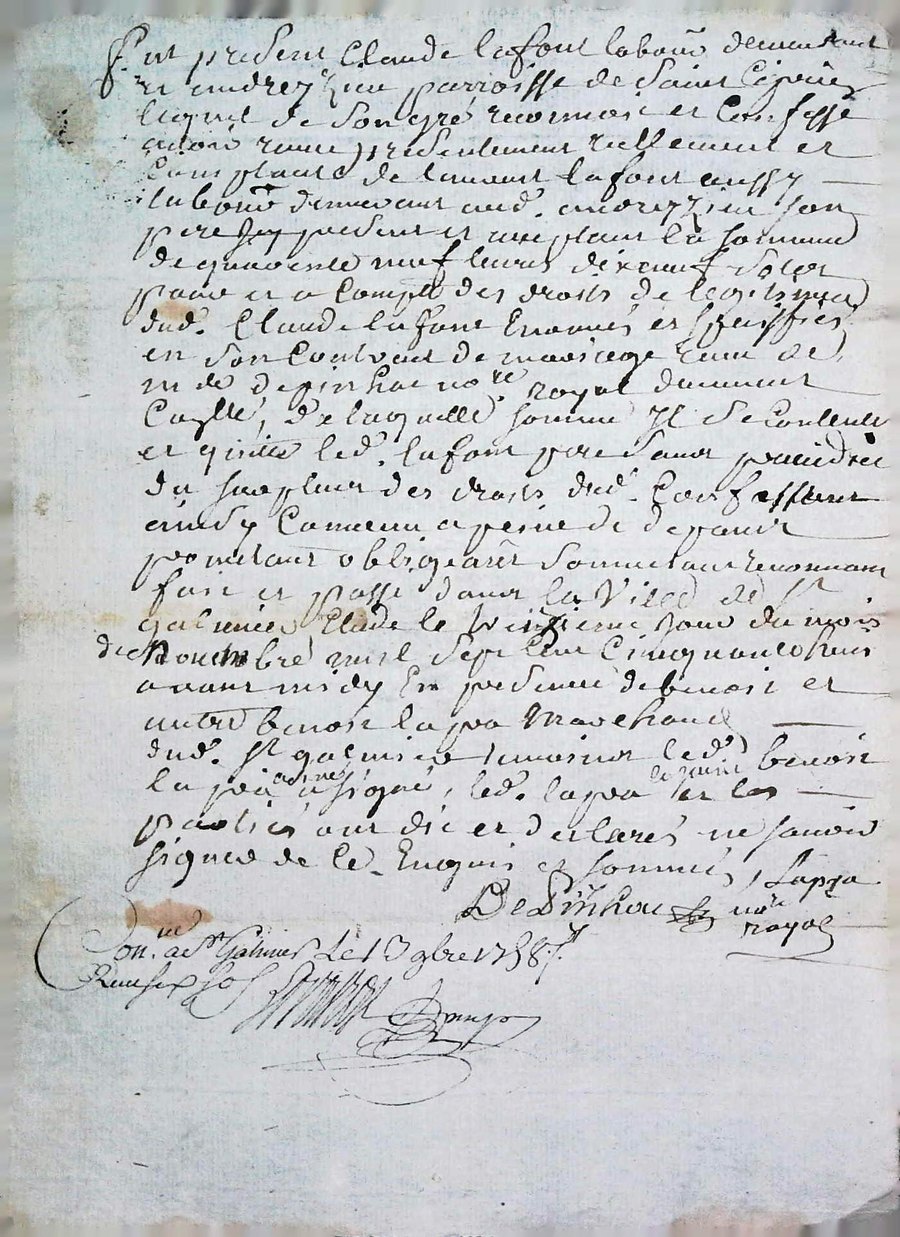 Fut present Claude lafont labour demeurant
et andrezieu parroisse de Saint Ciprien
lequel de Son gré reconnoit et Confesse
avoir receu presentement reellement et
Comptant de lafont aussy
labour demeurant aud. andrezieu Son
pere icy present et acceptant la Somme
de quarente neuf livres dixneuf Sols
paie et a Compte des droits de legitime
dud. Claude lafont Enoncés et Speciffies
en Son Contract de mariage receu de
me depinhac nore royal duement
Collé, de laquelle Somme Il Se Contente
et quitte led. lafont pere Sans prejudice
du Surplus des droits dud. Confessant
ainsy Convenu a peine de depans
promettant obligeant Soumettant renonceant
fait et passé dans la Ville de St
galmier, Etude le treizieme Jour du mois
de Novembre mil Sept Cent Cinquante huit
avant midy En presence de benoit et
autre benoit lapra Marchand
dud. St galmier temoins led. benoit
lapra ainé a Signé, led. lapra le jeune et les
parties ont dit et declarés ne Savoir
Signer de Ce Enquis et Sommés, Lapra
DePinhac nore
royal
Con. a St Galmier Le 13 9bre 1758